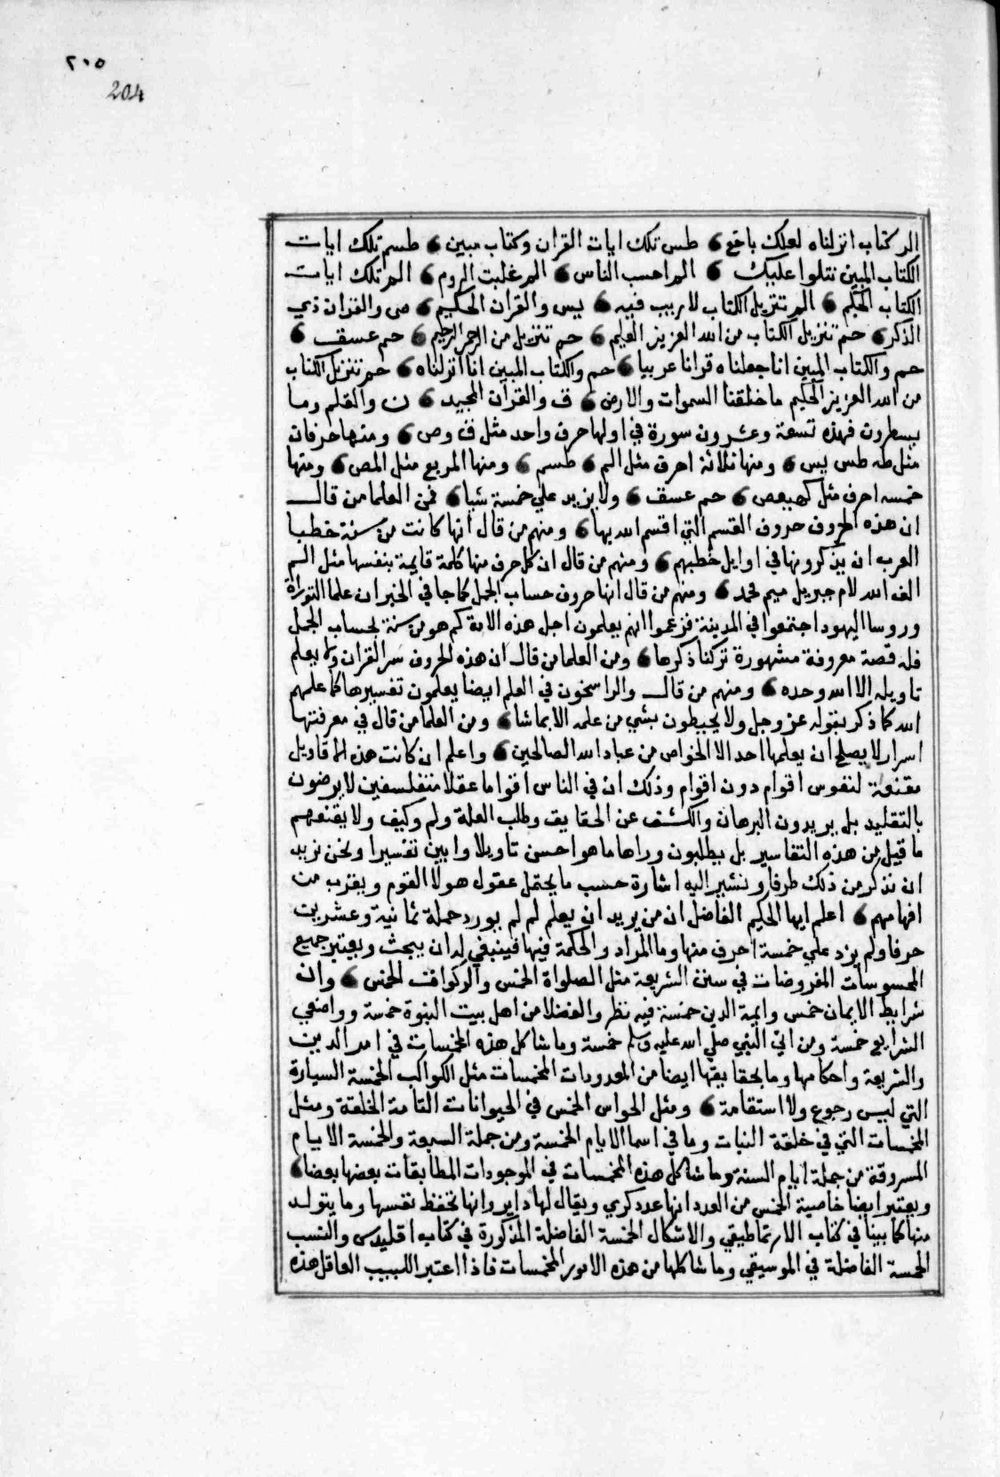 ٢٠٥
204
الر كتاب انزلناه لعلك باخع ۞ طس تلك ايات القران وكتاب مبين ۞ طسم تلك ايات
الكتاب المبين نتلوا عليك ۞ الم احسب الناس ۞ الم غلبت الروم ۞ الم تلك ايات
الكتاب الحكيم ۞ الم تنزيل الكتاب لا ريب فيه ۞ يس والقران الحكيم ۞ ص والقران ذي
الذكر ۞ حم تنزيل الكتاب من الله العزيز العليم ۞ حم تنزيل من الرحمن الرحيم ۞ حم عسق ۞
حم والكتاب المبين انا جعلناه قرانا عربيا ۞ حم والكتاب المبين انا انزلناه ۞ حم تنزيل الكتاب
من الله العزيز الحكيم ما خلقنا السموات والارض ۞ ق والقران المجيد ۞ ن والقلم وما
يسطرون فهذه تسعة وعشرون سورة في اولها حرف واحد مثل ق وص ۞ ومنها حرفان
مثل طه طس يس ۞ ومنها ثلاثة احرف مثل الم ۞ طسم ۞ ومنها المربع مثل المص ۞ ومنها
خمسه احرف مثل كهيعص ۞ حم عسق ۞ ولا يزيد علي خمسة شيا ۞ فمن العلما من قال
ان هذه الحروف حروف القسم التي اقسم الله بها ۞ ومنهم من قال انها كانت من سنة خطبا
العرب ان يذكرونها في اوايل خطبهم ۞ ومنهم من قال ان كل حرف منها كلمة قايمة بنفسها مثل الم
الف الله لام جبريل ميم محمد ۞ ومنهم من قال انها حروف حساب الجمل كما جا في الخبر ان علما التوراة
وروسا اليهود اجتمعوا في المدينة فزعموا انهم يعلمون اجل هذه الامة كم هو من سنة بحساب الجمل
فله قصة معروفة مشهورة تركنا ذكرها ۞ ومن العلما من قال ان هذه الحروف سر القران ولا يعلم
تاويله الا الله وحده ۞ ومنهم من قال والراسخون في العلم ايضا يعلمون تفسيرها كما علمهم
الله كما ذكر بقوله عز وجل ولا يحيطون بشي من علمه الا بما شا ۞ ومن العلما من قال في معرفتها
اسرار لا يصلح ان يعلمها احد الا الخواص من عباد الله الصالحين ۞ واعلم ان كانت هذه الاقاويل
مقنعة لنفوس اقوام دون اقوام وذلك ان في الناس اقواما عقلا متفلسفين لا يرضون
بالتقليد بل يريدون البرهان والكشف عن الحقايق وطلب العلة ولم وكيف ولا يقنعهم
ما قيل من هذه التفاسير بل يطلبون وراها ما هو احسن تاويلا وابين تفسيرا ونحن نريد
ان نذكر من ذلك طرفا ونشير اليه اشارة حسب ما يحتمل عقول هولا القوم ويقرب من
افهامهم ۞ اعلم ايها الحكيم الفاضل ان من يريد ان يعلم لم لم يورد حملة ثمانية وعشرين
حرفا ولم يزد علي خمسة احرف منها وما المراد والحكمة فيها فينبغي له ان يبحث ويعتبر جميع
المحسوسات المفروضات في سنن الشريعة مثل الصلواة الخمس والزكوات الخمس ۞ وان
شرايط الايمان خمس وايمة الدين خمسة فيه نظر والفضلا من اهل بيت النبوة خمسة وواضعي
الشرايع خمسة ومن اتي النبي صلي الله عليه وسلم خمسة وما شاكل هذه المخمسات في امر الدين
والشريعة واحكامها وما يحقايقها ايضا من المعدودات المخمسات مثل الكواكب الخمسة السيارة
التي ليس رجوع ولا استقامة ۞ ومثل الحواس الخمس في الحيوانات التامة الخلقة ومثل
المخمسات التي في خلقة النبات وما في اسما الايام الخمسة ومن جملة السبعة والخمسة الايام
المسروقة من جملة ايام السنة وما شاكل هذه المخمسات في الموجودات المطابقات بعضها بعضا ۞
ويعتبر ايضا خاصية الخمس من العدد انها عدد كري ويقال لها داير وانها تحفظ نفسها وما يتولد
منها كما بينا في كتاب الارتماطيقي والاشكال الخمسة الفاضلة المذكورة في كتاب اقليدس والنسب
الخمسة الفاضلة في الموسيقي وما شاكلها من هذه الامور المخمسات فاذا اعتبر اللبيب العاقل هذه